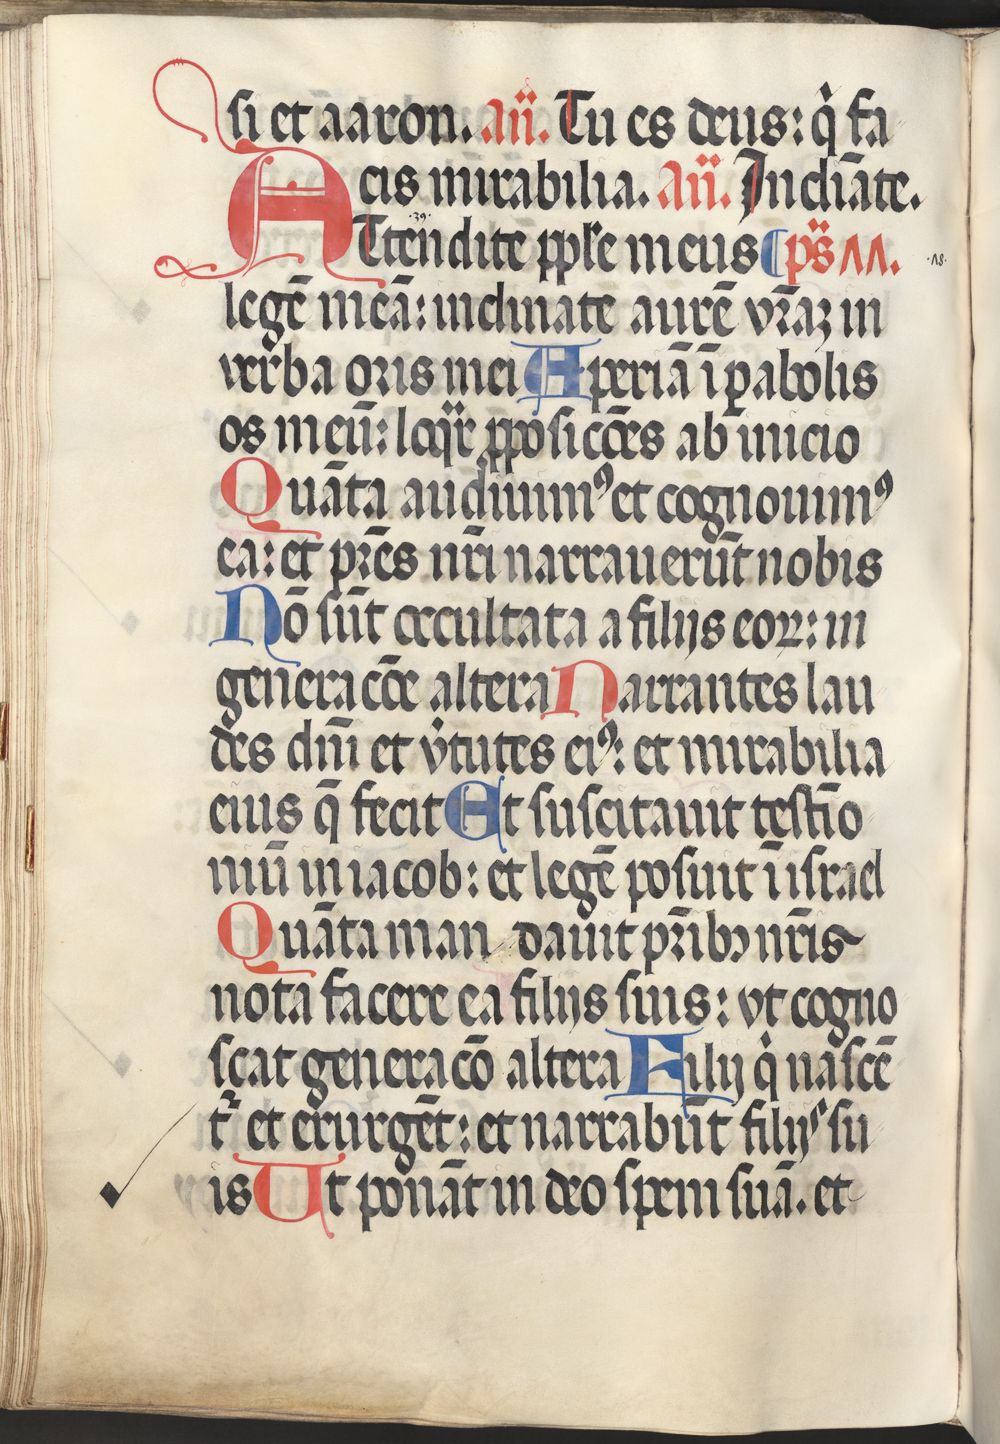 si et aaron. Añ. Tu es deus: q̇ fa
cis mirabilia. Añ. Inclīate.
ATtendite pple meus ps̄ ʌʌ.
legē meā: inclinate aurē vr̄aꝫ in
verba oris mei Aperiā ī pabolis
os meū: loq̄r pposicōes ab inicio
Quāta audiuimꝰ et cognouimꝰ
ea: et pr̄es nr̄i narrauerūt nobis
Nō sūt occultata a filijs eoꝝ: in
generacōe altera Narrantes lau
des dn̄i et v̇tutes eiꝰ: et mirabilia
eius q̄ fecit Et suscitauit testīo
niū in iacob: et legē posuit ī israel
Quāta man dauit pr̄ibꝫ nr̄is
nota facere ea filijs suis: vt cogno
scat generacō altera Filij q̇ nascē
tr̄ et exurgēt: et narrabūt filijs su
is Ut ponāt in deo spem suā. et